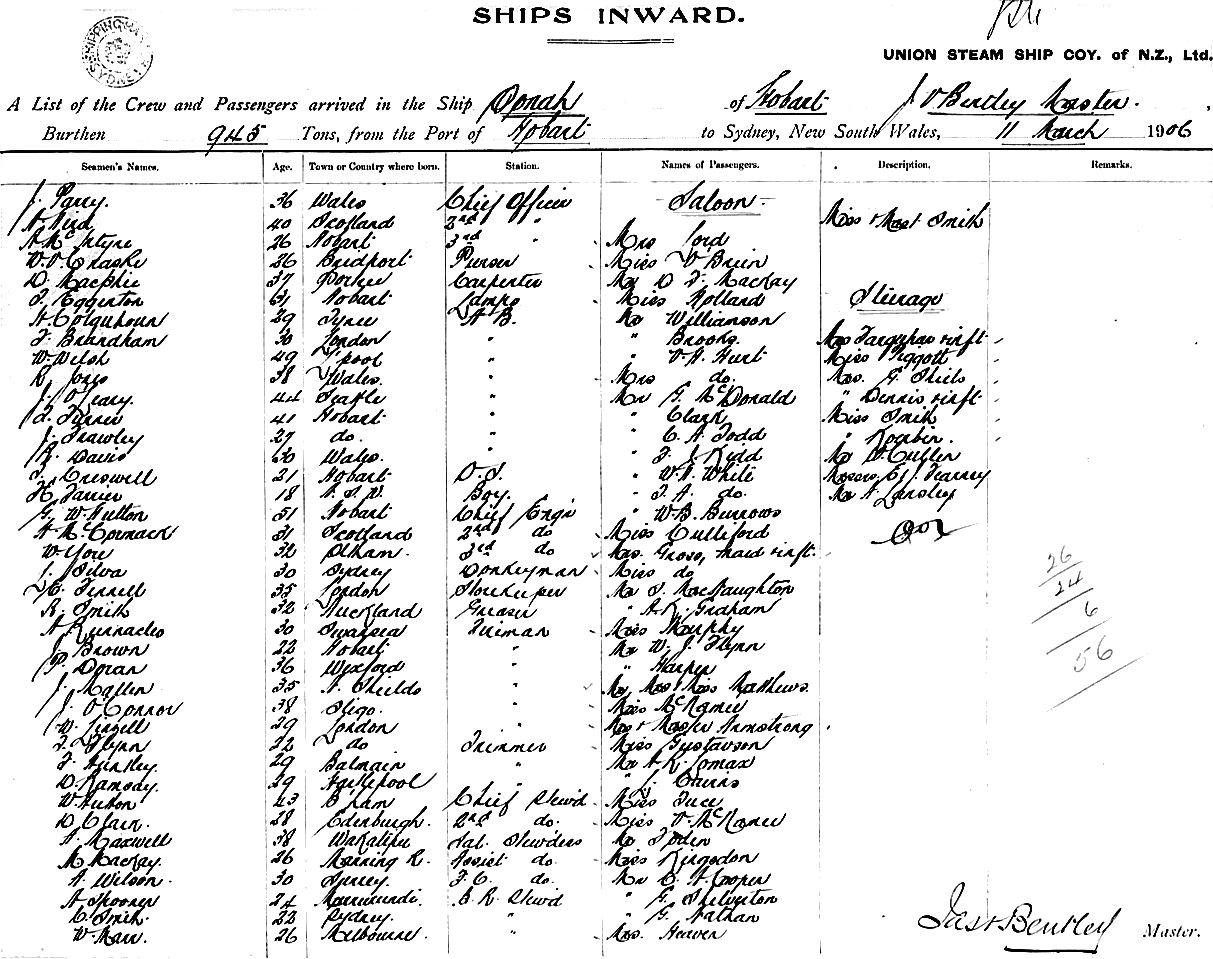 SHIPS INWARD.
UNION STEAM SHIP COY. of N.Z., Ltd.
SHIPPING SYDNEY
A List of the Crew and Passengers arrived in the Ship Oonah of Hobart J V Bentley Master.
Burthen 945 Tons, from the Port of Hobart to Sydney, New South Wales, 11 March 1906
Seamen's Names. Age. Town or Country where born. Station. Names of Passengers. Description. Remarks.
J. Parry. 36 Wales Chief Officer Saloon.
40 Scotland 2nd " Miss & Mast Smith
A McIntyre 26 Hobart 3rd " Mrs Lord
26 Bridport Purser Miss O'Brien
D. Macphie 37 Carpenter Mr D F Mackay
F. Eggerton 61 Hobart Lamps Miss Holland Steerage
H. Colquhoun 29 Tyree A B. Mr Williamson
F. Brandham 30 London " " Brooks Mrs Farquhar & inft
W. Welsh 49 L'pool " " Hurt Miss Piggott
R Jones 38 Wales. " Mrs do. Mrs. G. Shiels
J. O'Leary. 44 Seattle " Mr G. McDonald " Dennis & inft
F. Turner 41 Hobart " " Clark Miss Smith
J. Frawley 27 do. " " C. A. Todd "
R. Davis 30 Wales. " " F. J. Kidd Mr D. Cullen
F. Creswell 21 Hobart O.S. " W. A. White
H. Farrier 18 Boy. " F. A. do. Mr A. Lansley
G. W. Hutton 51 Hobart Chief Engr " W. B. Burrows
A McCormack 31 Scotland 2nd do Miss Culliford
W. You 32 Oldham. 3rd do Mrs. Gross, maid & inft.
J. Silva 30 Sydney Donkeyman Miss do
E. Ferrell 35 London Storekeeper Mr S. MacNaughton
R. Smith 32 Auckland Greaser " A. K. Graham
A Runnacles 30 Swansea Fireman Miss Murphy
J. Brown 22 Hobart " Mr W. J. Flynn
P. Doran 36 Wexford " " Harper
J. Hallen 35 N. Shields " Mr Mrs & Miss Matthews.
J. O'Connor 38 Sligo. " Miss McNamee
W. Lingell 29 London " Mrs & Master Armstrong
F. Flynn 22 do Trimmer Miss Gustavson
F. Hinkley. 29 Balmain " Mr A. R. Lomax
D. Ramsay. 29 Hartlepool " " J. Cairns
W. Huton 43 B'ham Chief Stewd. Miss Tuce
D. Clark. 28 Edinburgh. 2nd do. Miss McNamee
A. Maxwell 38 Wakatipu Sal. Stewdess Mr Foden
M. Mackay. 26 Manning R. Assist do. Miss Kingsdon
A. Wilson. 30 Surrey. F. C. do. Mr C. H. Cooper
A Spooner 24 Murrurundi. B. R. Stewd " G. Silverton
C. Smith. 22 Sydney. " " G. Nathan
W. Marr. 26 Melbourne. " Mrs. Heaven
26
24
6
56
Jas V Bentley Master.